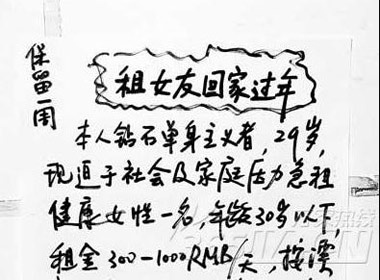 保留一周
租女友回家过年
本人钻石单身主义者，29岁，
现迫于社会及家庭压力急租
健康女性一名，年龄30岁以下
租金300-1000RMB/天，按漂